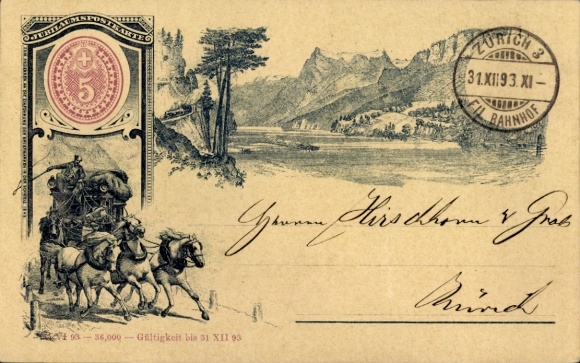 JUBILÄUMSPOSTKARTE
5
ZÜRICH 3
31.XII 93.XI-
FIL. BAHNHOF
Herren Hirschhorn & Grob
Zürich
VI 93 — 36,000 — Gültigkeit bis 31 XII 93